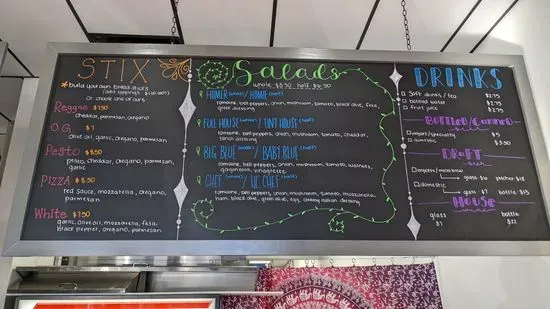 STIX
* build your own bread stick
Or choose one of ours
Reggae $7.50
Cheddar, parmesan, oregano
O.G. $7
Olive oil, garlic, oregano, parmesan
Pesto $8.50
pesto, cheddar, oregano, parmesan,
garlic
PIZZA $8.50
red sauce, mozzarella, oregano,
parmesan
White $7.50
garlic, olive oil, mozzarella, feta,
black pepper, oregano, parmesan
Salads
whole half
HOMER (whole) / HOME (half)
romaine, bell peppers, onion, mushroom, tomato, black olive, feta,
greek dressing
FULL HOUSE (whole) / TINY HOUSE (half)
romaine, bell peppers, onion, mushroom, tomato, cheddar,
ranch dressing
BIG BLUE (whole) / BABY BLUE (half)
romaine, bell peppers, onion, mushroom, tomato, walnuts,
gorgonzola, vinaigrette
CHEF (whole) / LIL' CHEF (half)
romaine, bell peppers, onion, mushroom, tomato, mozzarella,
ham, black olive, egg, creamy italian dressing
DRINKS
soft drinks / tea $2.75
bottled water $2.75
fruit juice $2.75
BOTTLED/Canned
beer
import/specialty $5
domestic $3.50
DRAFT
beer
import/microbrew
glass $6 pitcher $18
domestic
glass pitcher $15
HOUSE
glass bottle
$22